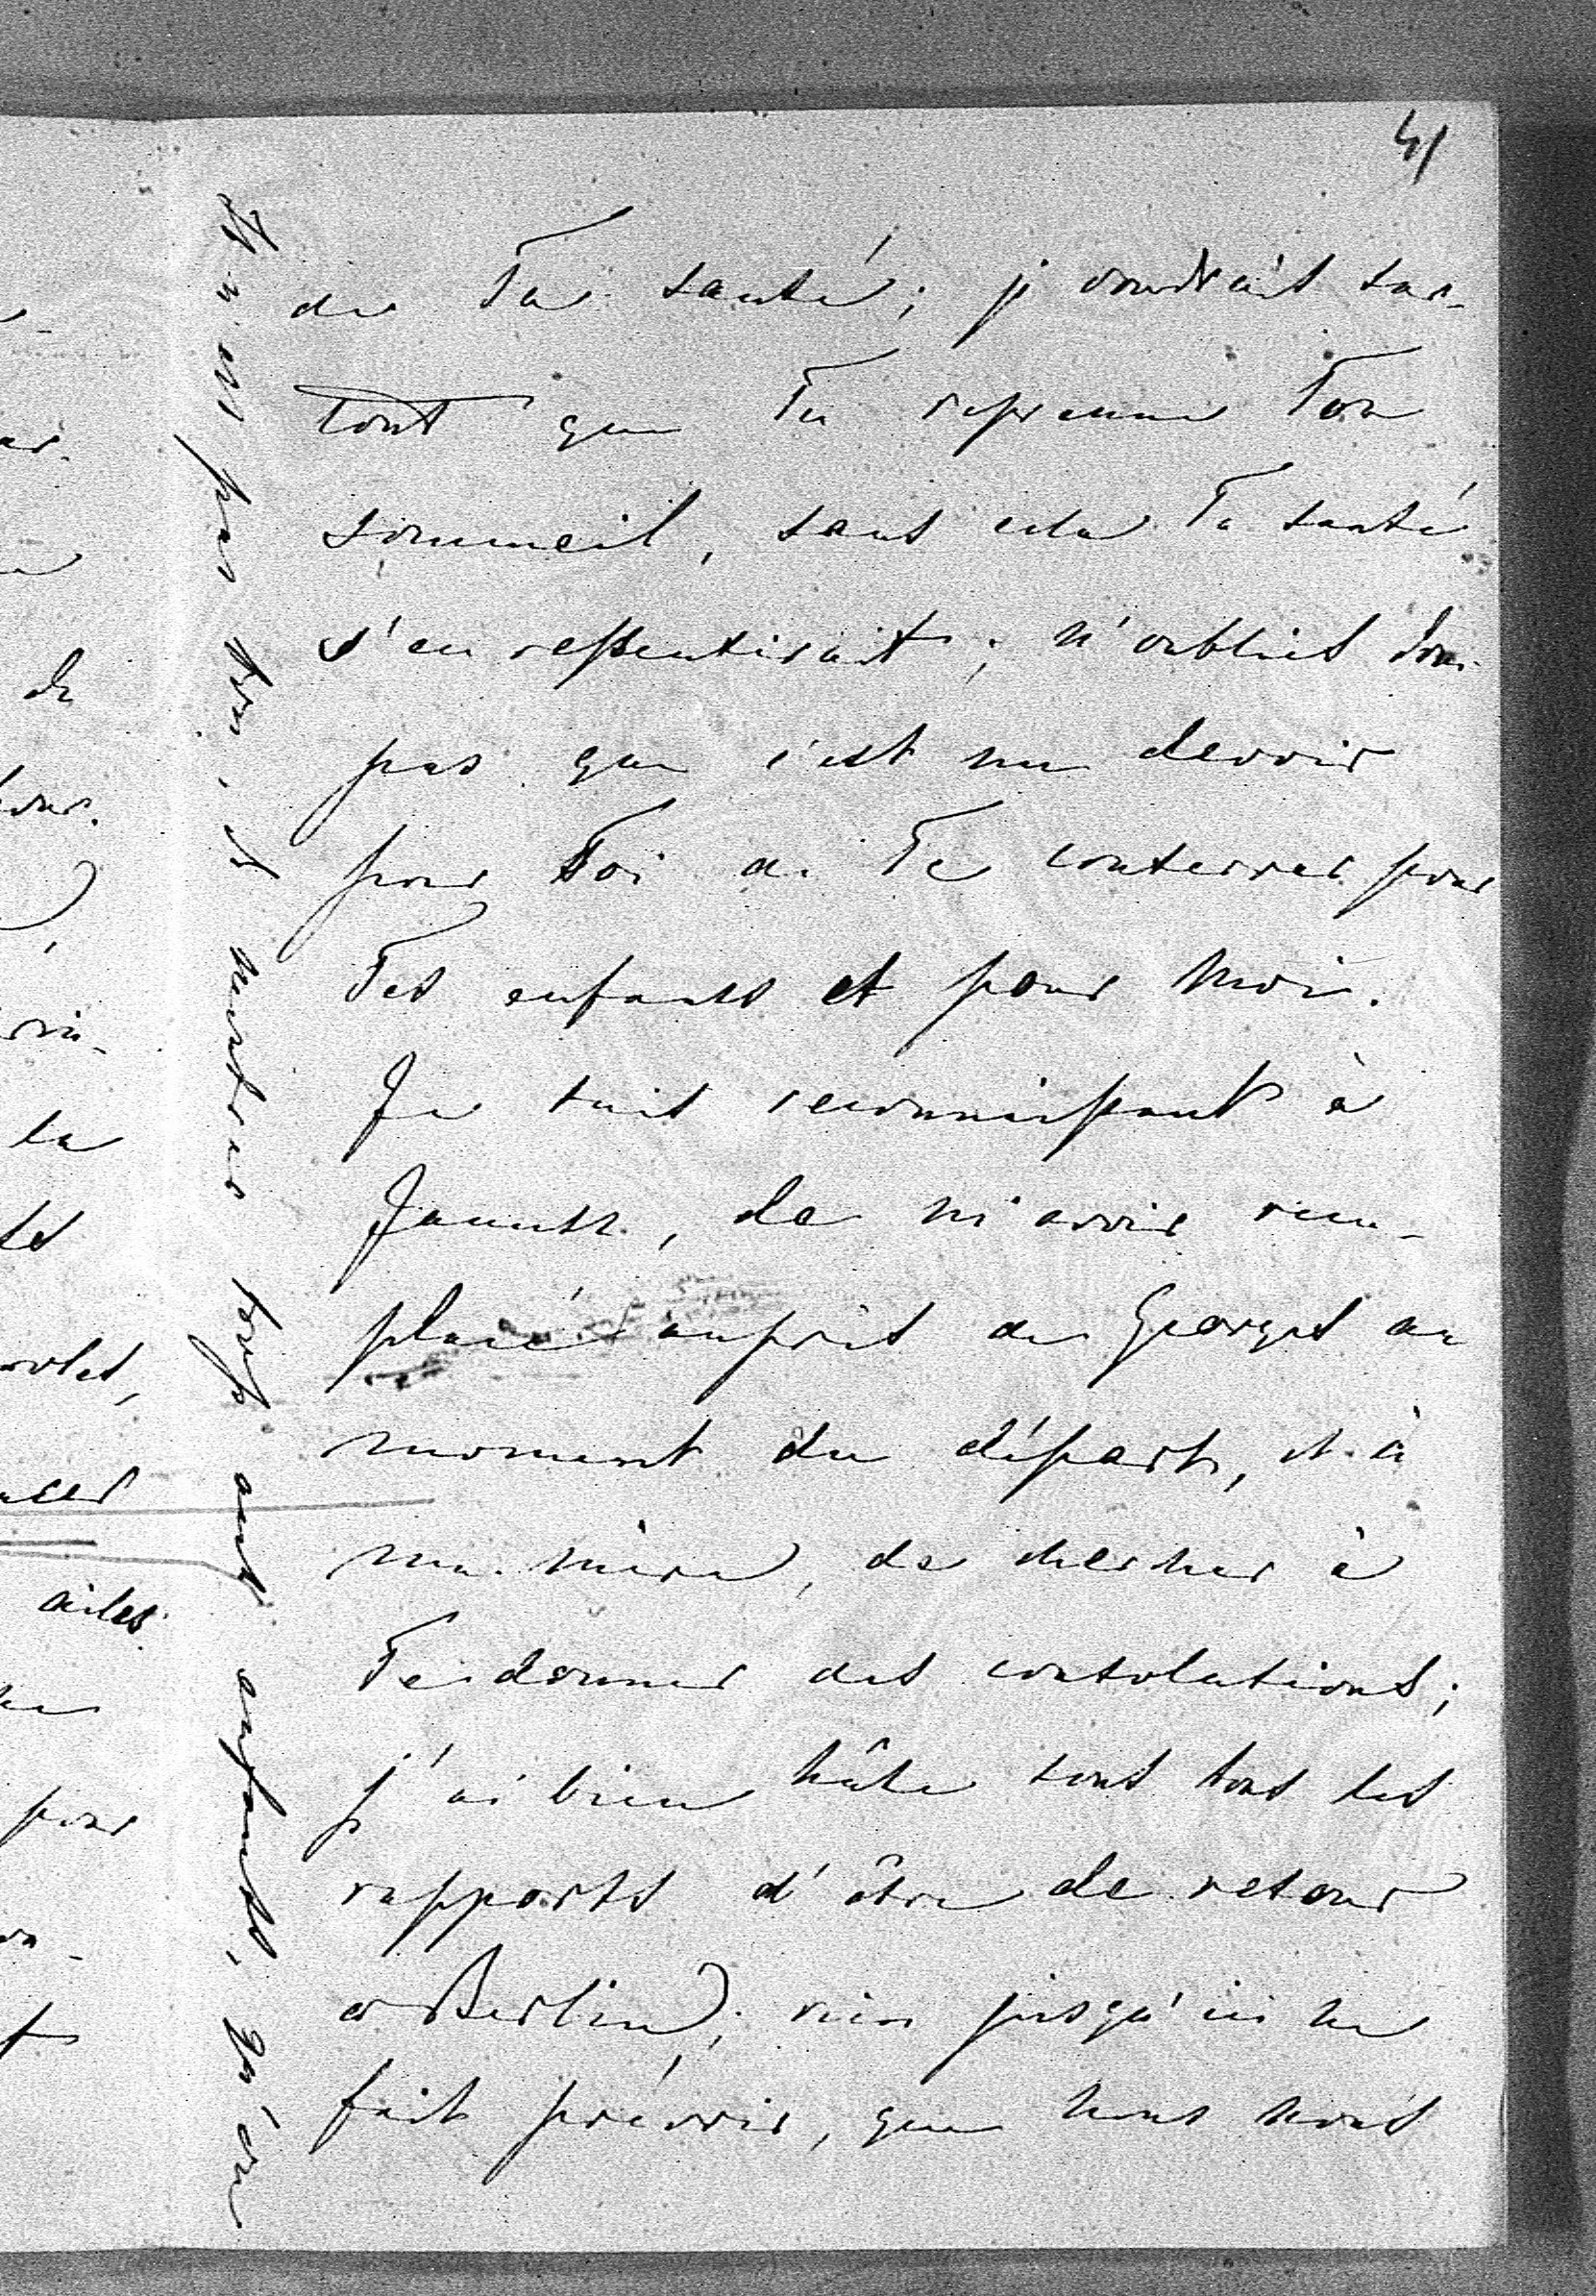 41
de Ta santé; je voudrais sur-
tout que Tu reprenne Ton
sommeil, sans cela Ta santé
s'en ressentirait; n'oublies donc
pas que c'est un devoir
pour Toi de Te conserver pour
Tes enfants et pour moi.
Je suis reconnaissant à
de m'avoir rem-
placé auprès de Georges au
moment du départ, et à
ma mère, de chercher à
Te donner des consolations;
j'ai bien hâte sous tous les
rapports d'être de retour
à Berlin; rien jusqu'ici ne
fait prévoir, que nous nous
pas et
aux enfants, qu'on
de
la
ailes
pour